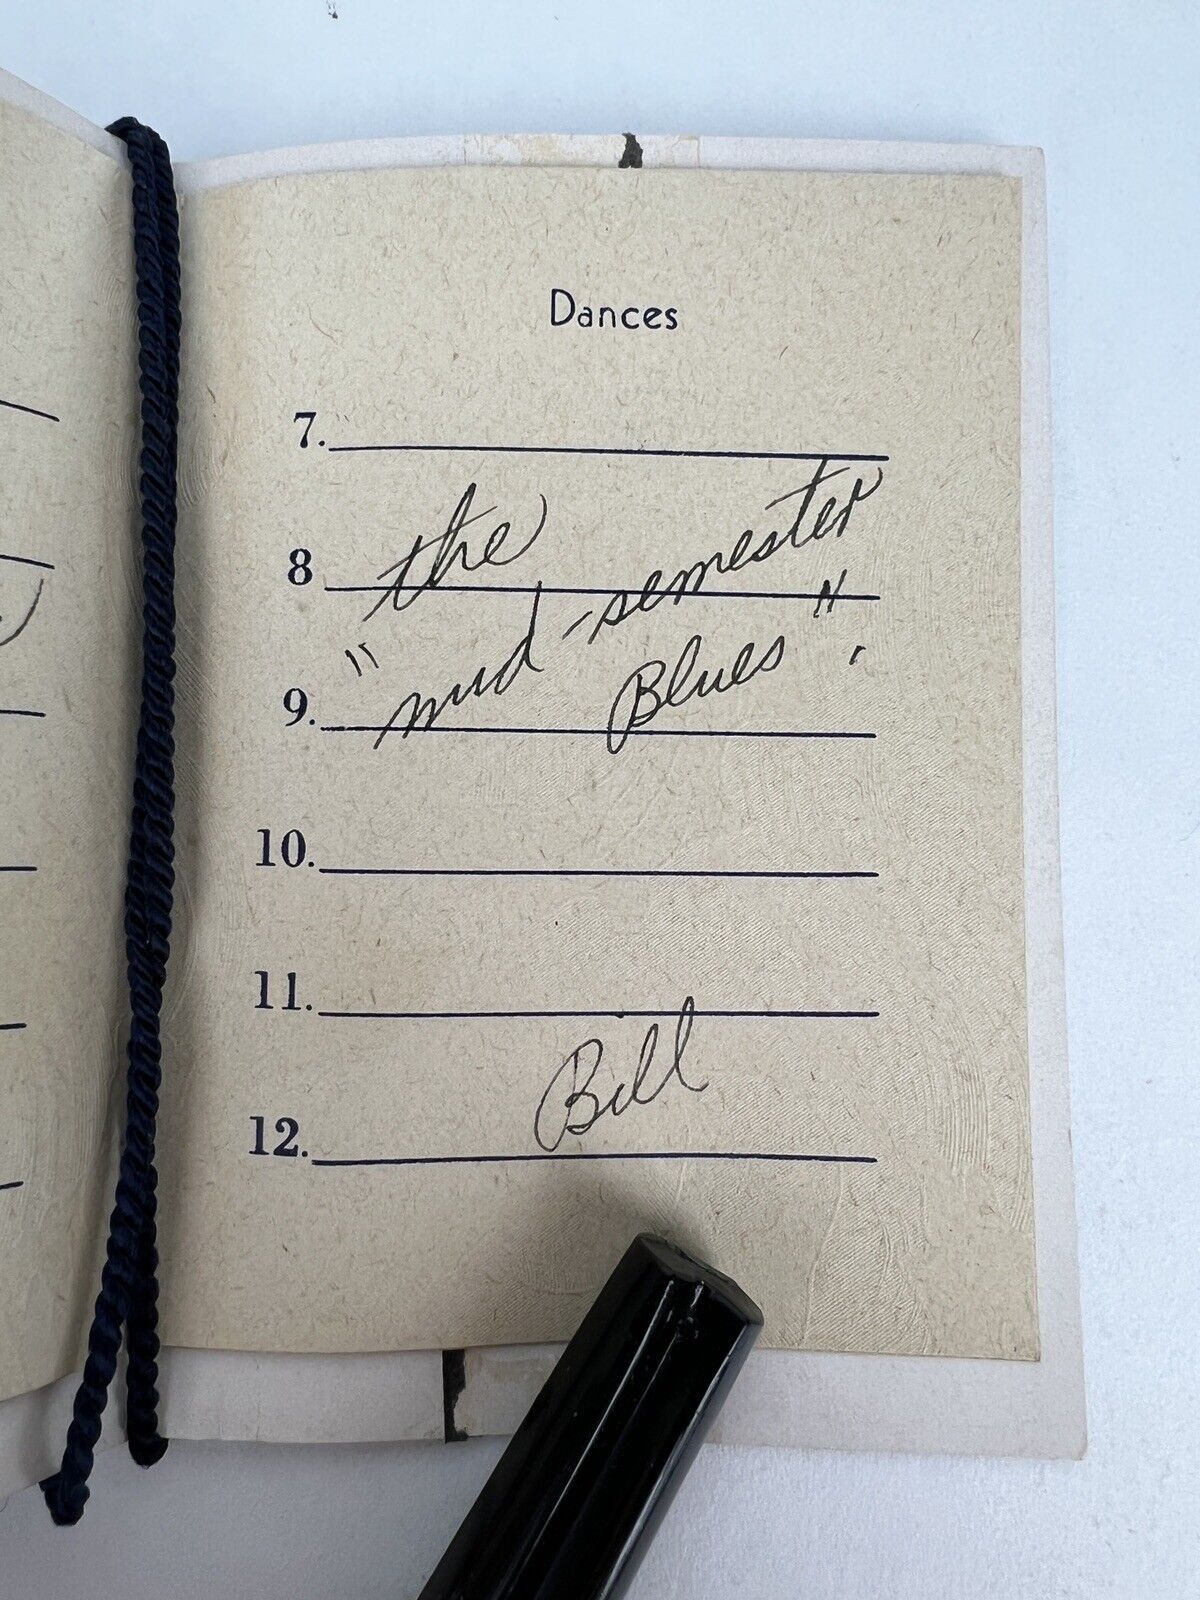 Dances
7.
8 the
"mid-semester
9. Blues".
10.
11.
Bill
12.